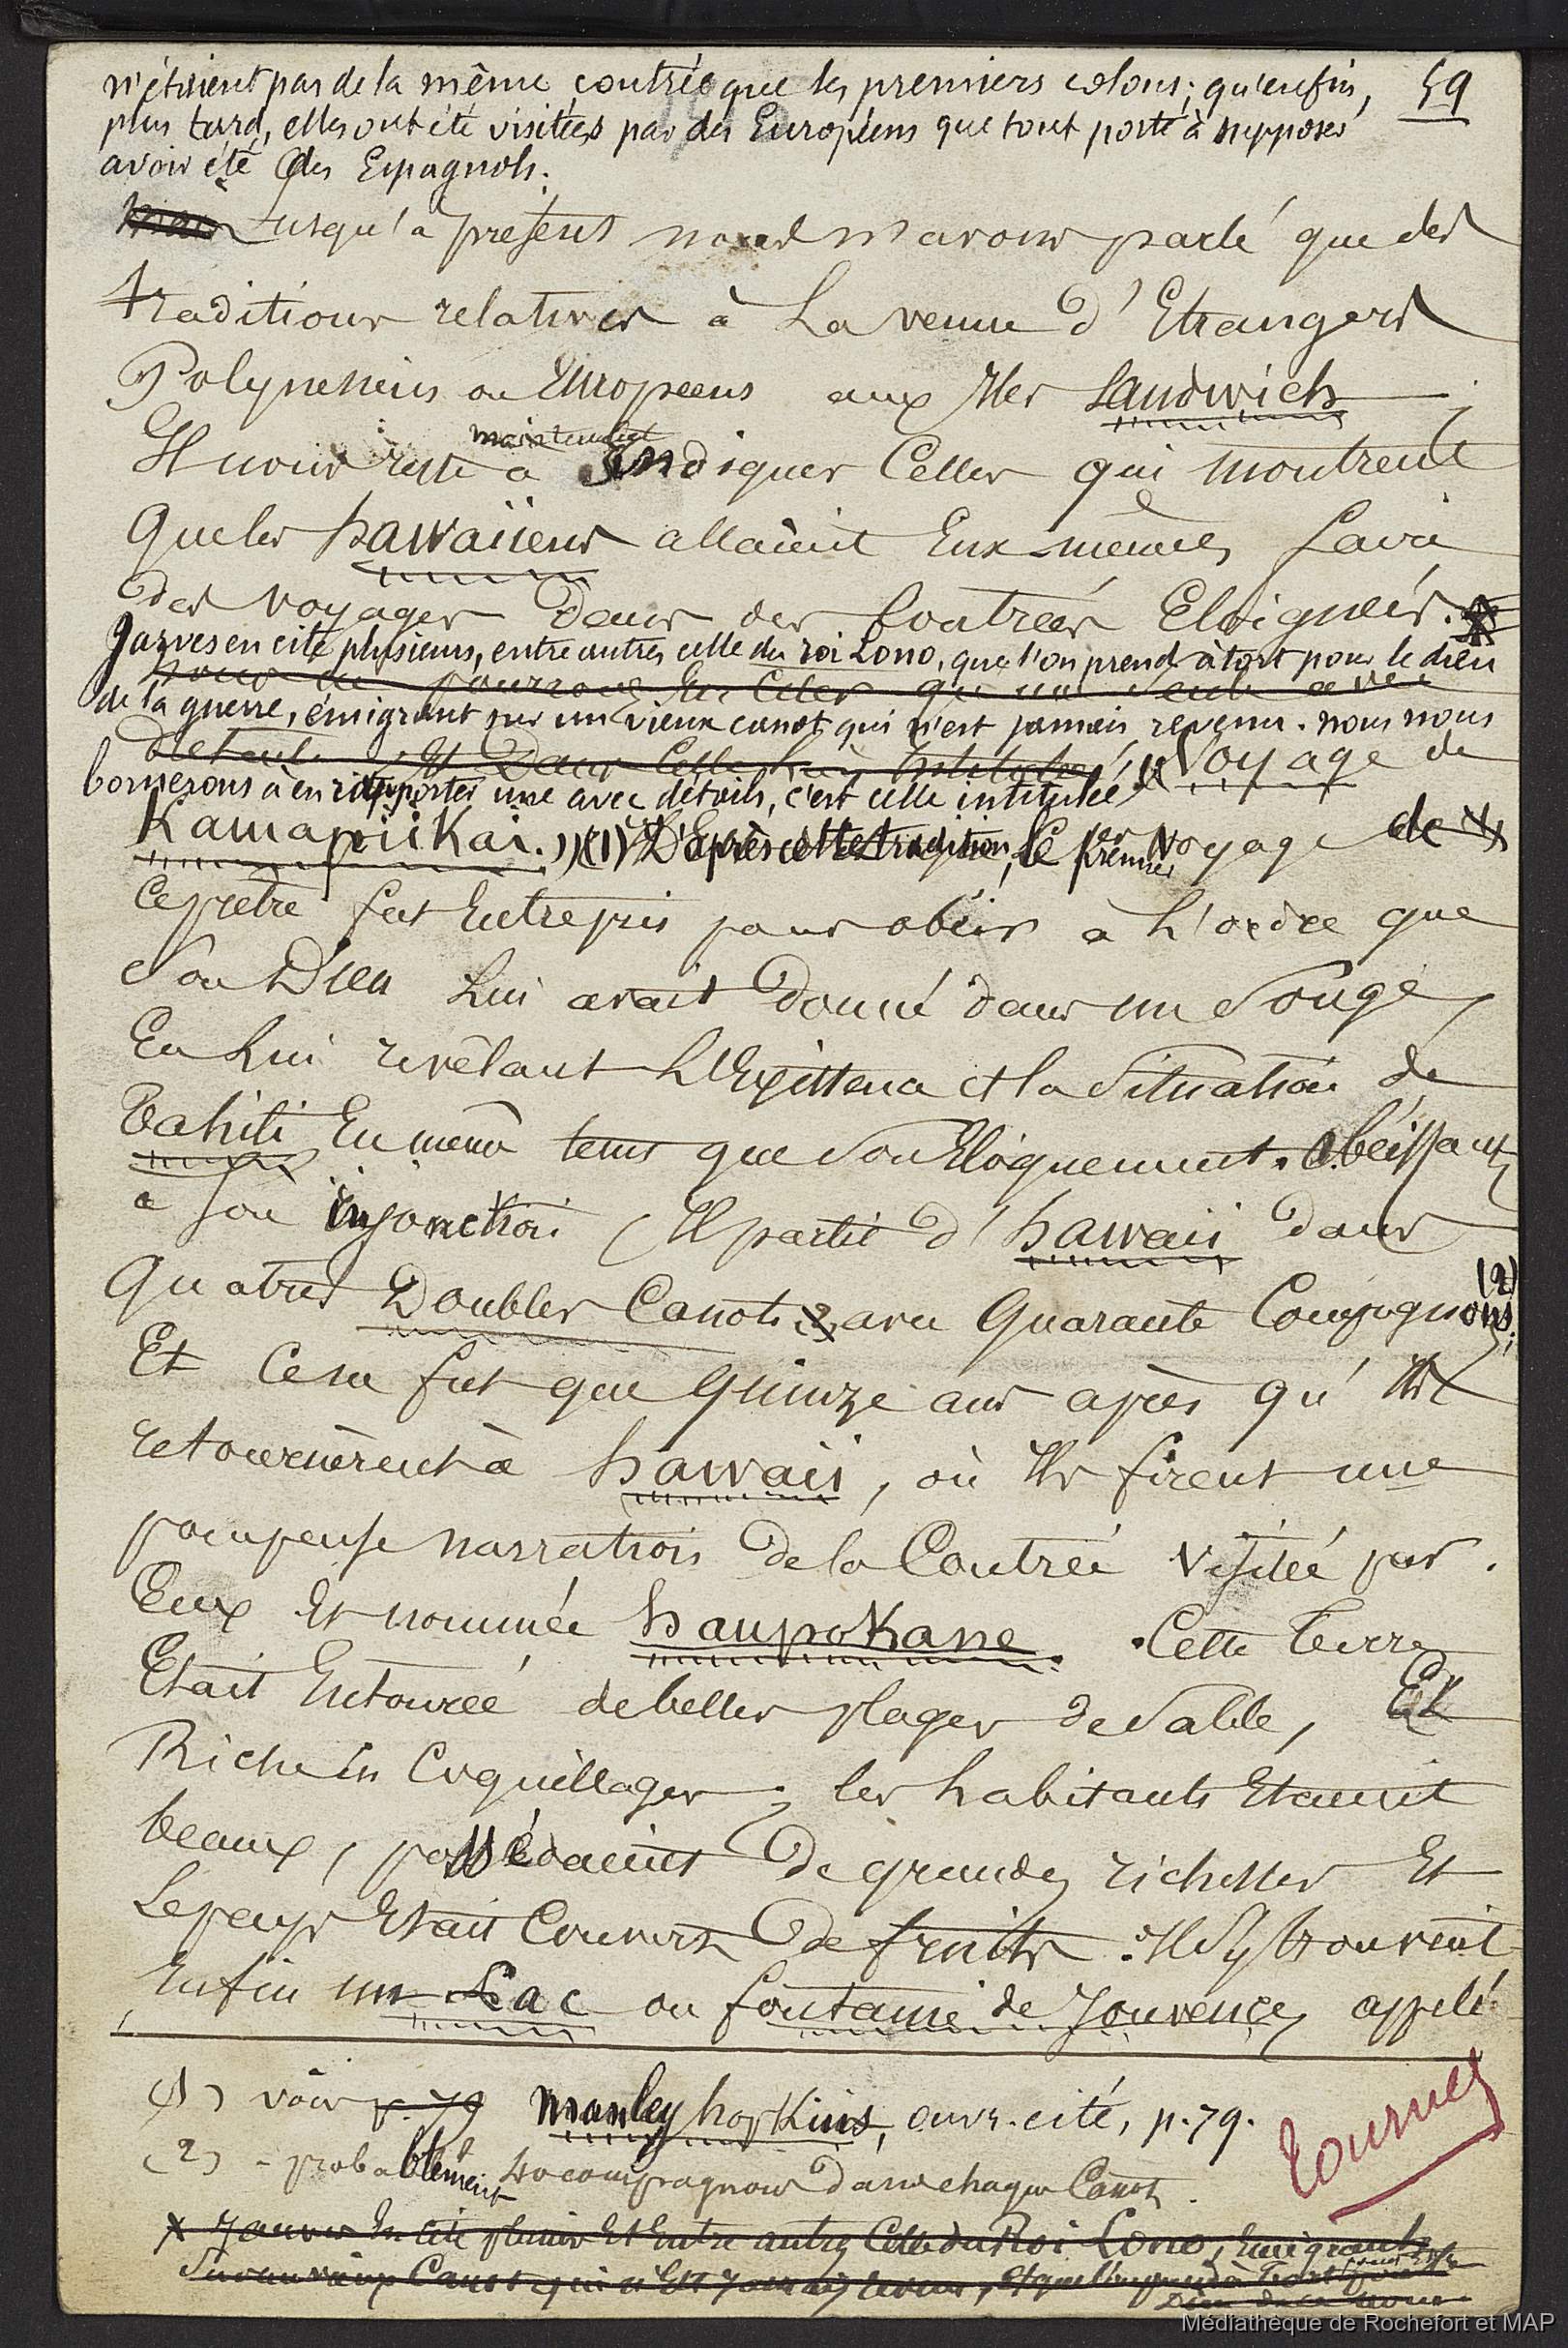 n'étaient pas de la même contrée que les premiers colons; qu'enfin, 59
plus tard, elles ont été visitées par des Européens que tout porte à supposer
avoir été des Espagnols.
Jusqu'à présent nous n'avons parlé que des
traditions relatives à La venue d'Etrangers
Polynesiens ou Europeens aux Iles Sandwich;
maintenant
Il nous reste à Indiquer Celles qui montrent
Que les hawaiiens allaient Eux mêmes faire
des voyages dans des Contrées Eloignées.
Jarves en cite plusieurs, entre autres celle du roi Lono, que l'on prend à tort pour le dieu
nous ne pourrons En Citer qu'une Seule avec
de la guerre, émigrant sur un vieux canot qui n'est jamais revenu. nous nous
détails Voyage de
bornerons à en rapporter une avec détails, c'est celle intitulée
Kamapiikai.» (1) D'après cette tradition, le 1er premier voyage de
Ce prêtre fut Entrepris pour obéir à L'ordre que
Son Dieu Lui avait donné dans un Songe,
En Lui revêlant L'Existence et la Situation de
Tahiti En même tems que Son Eloignement. Obéissant
à son injonction, Il partit d'hawaii dans
Quatres Doubles Canots avec Quarante Compagnons (2);
Et Ce ne fut que Quinze ans après qu'Ils
retournèrent à hawaii, où Ils firent une
pompeuse narration de la Contrée visitée par
Eux Et nommée haupokane. Cette Terre
Etait Entourée de belles plages de Sable, Et
Riche En Coquillages; les habitants Etaient
beaux, possédaient de grandes richesses Et
Le pays Etait Couvert de fruits. Il S'y trouvait
Enfin un Lac ou fontaine de Jouvence, appelé
(1) voir p. 79 Manley hopkins, ouvr. cité, p. 79.
(2) - probablement 40 compagnons dans chaque Canot.
Tournez
x Jarves En Cite plusieurs Et Entre autres Celle du Roi Lono, Emigrant
Sur un vieux Canot qui n'Est Jamais revenu, Et que l'on prend à Tort pour
Médiathèque de Rochefort et MAP